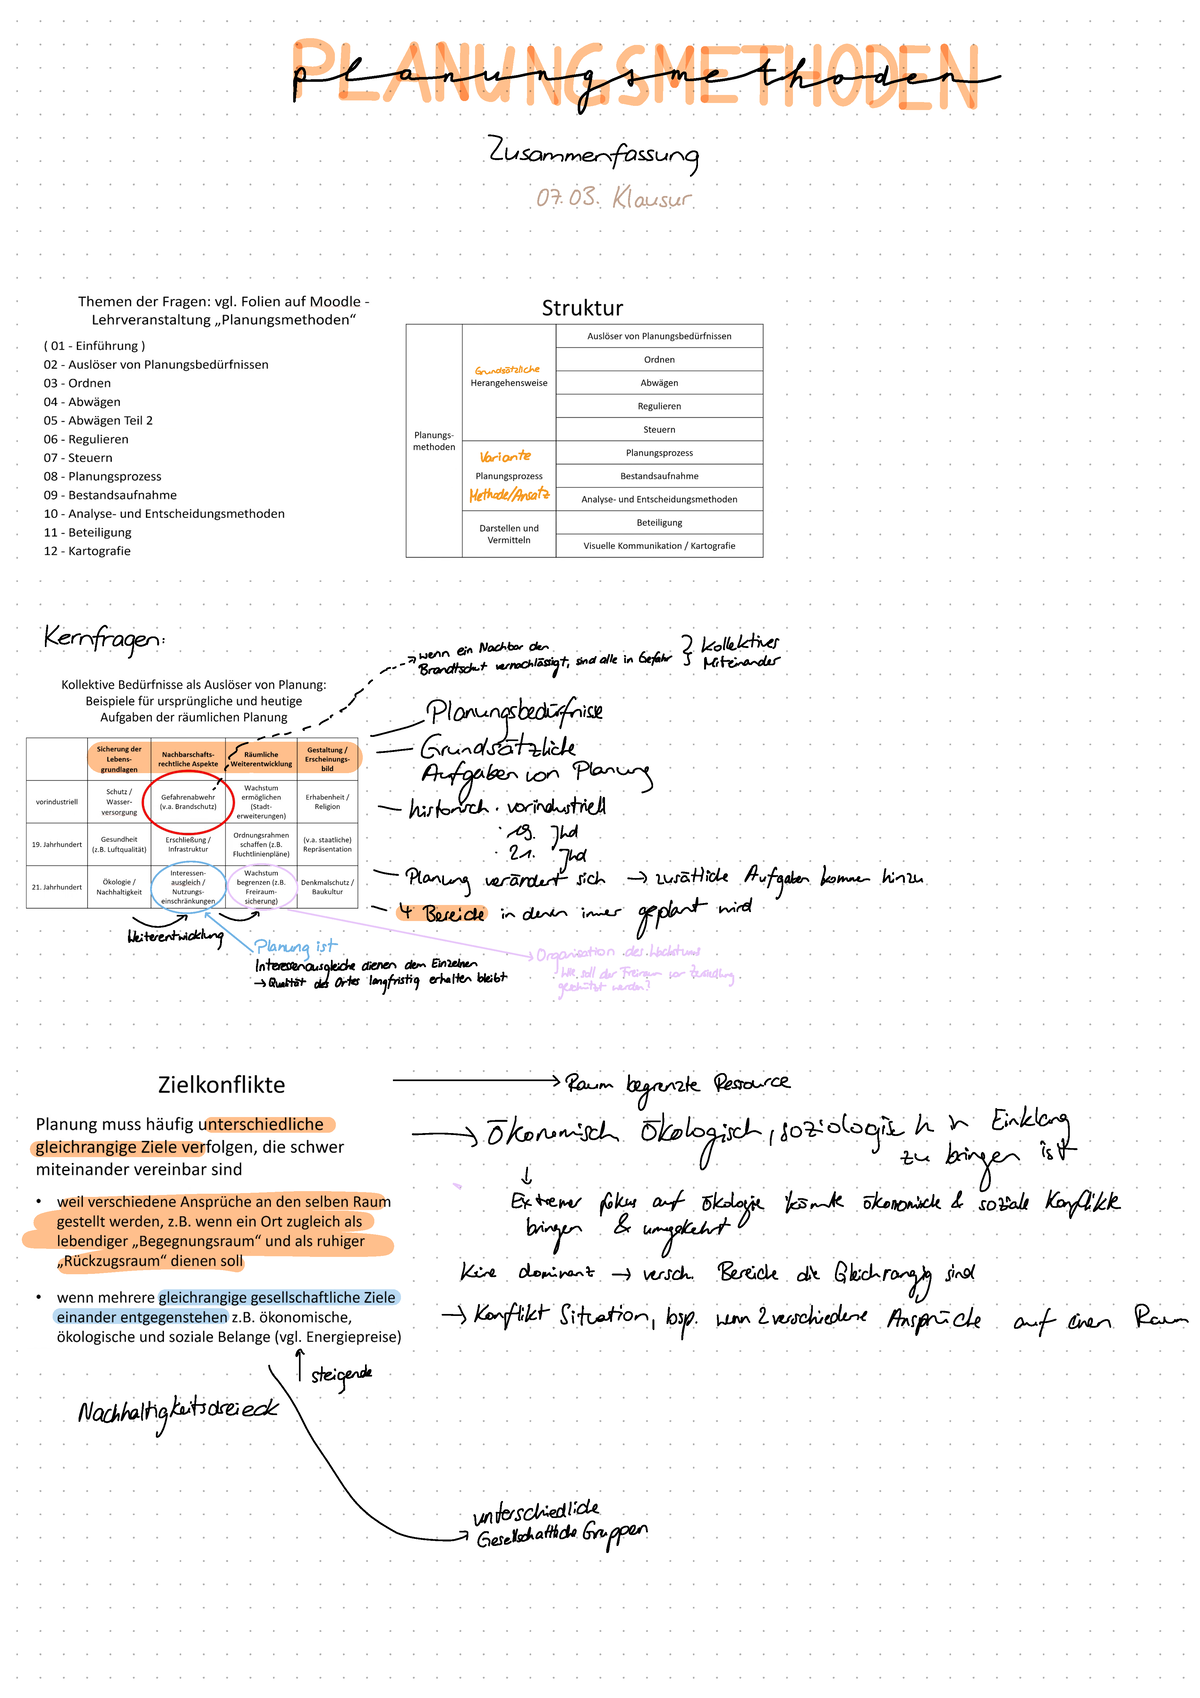 PLANUNGSMETHODEN
planungsmethoden
Zusammenfassung
07.03. Klausur
Themen der Fragen: vgl. Folien auf Moodle -
Lehrveranstaltung „Planungsmethoden“
( 01 - Einführung )
02 - Auslöser von Planungsbedürfnissen
03 - Ordnen
04 - Abwägen
05 - Abwägen Teil 2
06 - Regulieren
07 - Steuern
08 - Planungsprozess
09 - Bestandsaufnahme
10 - Analyse- und Entscheidungsmethoden
11 - Beteiligung
12 - Kartografie
Struktur
Planungs-
methoden
Grundsätzliche
Herangehensweise
Auslöser von Planungsbedürfnissen
Ordnen
Abwägen
Regulieren
Steuern
Variante
Planungsprozess
Methode/Ansatz
Planungsprozess
Bestandsaufnahme
Analyse- und Entscheidungsmethoden
Darstellen und
Vermitteln
Beteiligung
Visuelle Kommunikation / Kartografie
Kernfragen:
wenn ein Nachbar den
Brandtschut vernachlässigt, sind alle in Gefahr
Kollektives
Miteinander
Kollektive Bedürfnisse als Auslöser von Planung:
Beispiele für ursprüngliche und heutige
Aufgaben der räumlichen Planung
Sicherung der
Lebens-
grundlagen
Nachbarschafts-
rechtliche Aspekte
Räumliche
Weiterentwicklung
Gestaltung /
Erscheinungs-
bild
vorindustriell
Schutz /
Wasser-
versorgung
Gefahrenabwehr
(v.a. Brandschutz)
Wachstum
ermöglichen
(Stadt-
erweiterungen)
Erhabenheit /
Religion
19. Jahrhundert
Gesundheit
(z.B. Luftqualität)
Erschließung /
Infrastruktur
Ordnungsrahmen
schaffen (z.B.
Fluchtlinienpläne)
(v.a. staatliche)
Repräsentation
21. Jahrhundert
Ökologie /
Nachhaltigkeit
Interessen-
ausgleich /
Nutzungs-
einschränkungen
Wachstum
begrenzen (z.B.
Freiraum-
sicherung)
Denkmalschutz /
Baukultur
Planungsbedürfnisse
Grundsätzliche
Aufgaben von Planung
historisch · vorindustriell
· 19. Jhd
· 21. Jhd
Planung verändert sich → zusätliche Aufgaben kommen hinzu
4 Bereiche in denen immer geplant wird
Weiterentwicklung
Planung ist
Interessenausgleiche dienen dem Einzelnen
→ Qualität des Ortes langfristig erhalten bleibt
Organisation des Wachstums
Wie soll der Freiraum vor
geschützt werden?
Zielkonflikte
→ Raum begrenzte Ressource
Planung muss häufig unterschiedliche
gleichrangige Ziele verfolgen, die schwer
miteinander vereinbar sind
→ Ökonomisch Ökologisch, soziologisch in Einklang
zu bringen ist
• weil verschiedene Ansprüche an den selben Raum
gestellt werden, z.B. wenn ein Ort zugleich als
lebendiger „Begegnungsraum“ und als ruhiger
„Rückzugsraum“ dienen soll
↓
Extremer fokus auf ökologie könnte ökonomische & soziale Konflikte
bringen & umgekehrt
Keine dominanz → versch. Bereiche die Gleichrangig sind
→ Konflikt Situation, bsp. wenn 2 verschiedene Ansprüche auf einen Raum
• wenn mehrere gleichrangige gesellschaftliche Ziele
einander entgegenstehen z.B. ökonomische,
ökologische und soziale Belange (vgl. Energiepreise)
steigende
Nachhaltigkeitsdreieck
unterschiedliche
Gesellschaftliche Gruppen